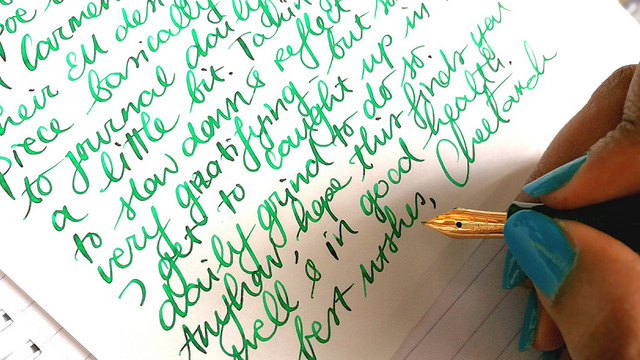 Carmen
their EU
piece basically daily
to journal
a little bit. Takin
to slow down & reflect
very gratifying - but so
I get to caught up in
daily grind to do so.
Anyhow, hope this finds you
well & in good health.
best wishes, Cheetarah